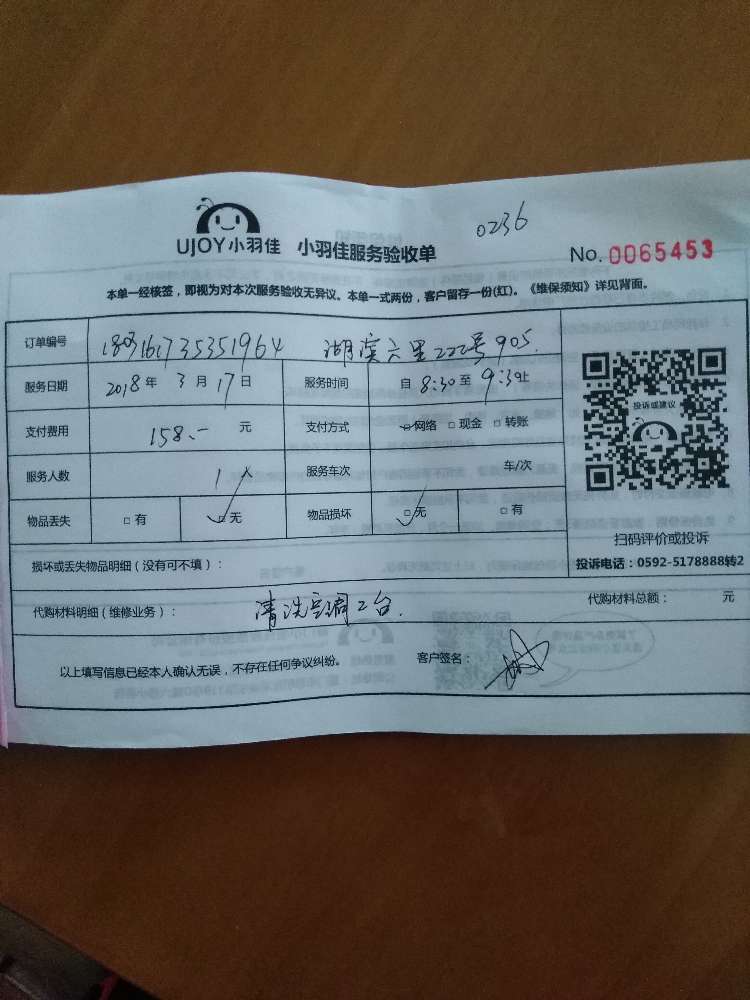 0236
UJOY小羽佳 小羽佳服务验收单 No. 0065453
本单一经核签，即视为对本次服务验收无异议。本单一式两份，客户留存一份(红)。《维保须知》详见背面。
订单编号 湖滨六里222号905.
服务日期 2018年3月17日 服务时间 自8:30至9:30止
支付费用 158.- 元 支付方式 □网络 □现金 □转账
服务人数 1人 服务车次 车/次
物品丢失 □有 □无 物品损坏 □无 □有
投诉或建议
扫码评价或投诉
投诉电话：0592-5178888转2
损坏或丢失物品明细（没有可不填）：
代购材料明细（维修业务）： 清洗空调2台. 代购材料总额： 元
以上填写信息已经本人确认无误，不存在任何争议纠纷。 客户签名：